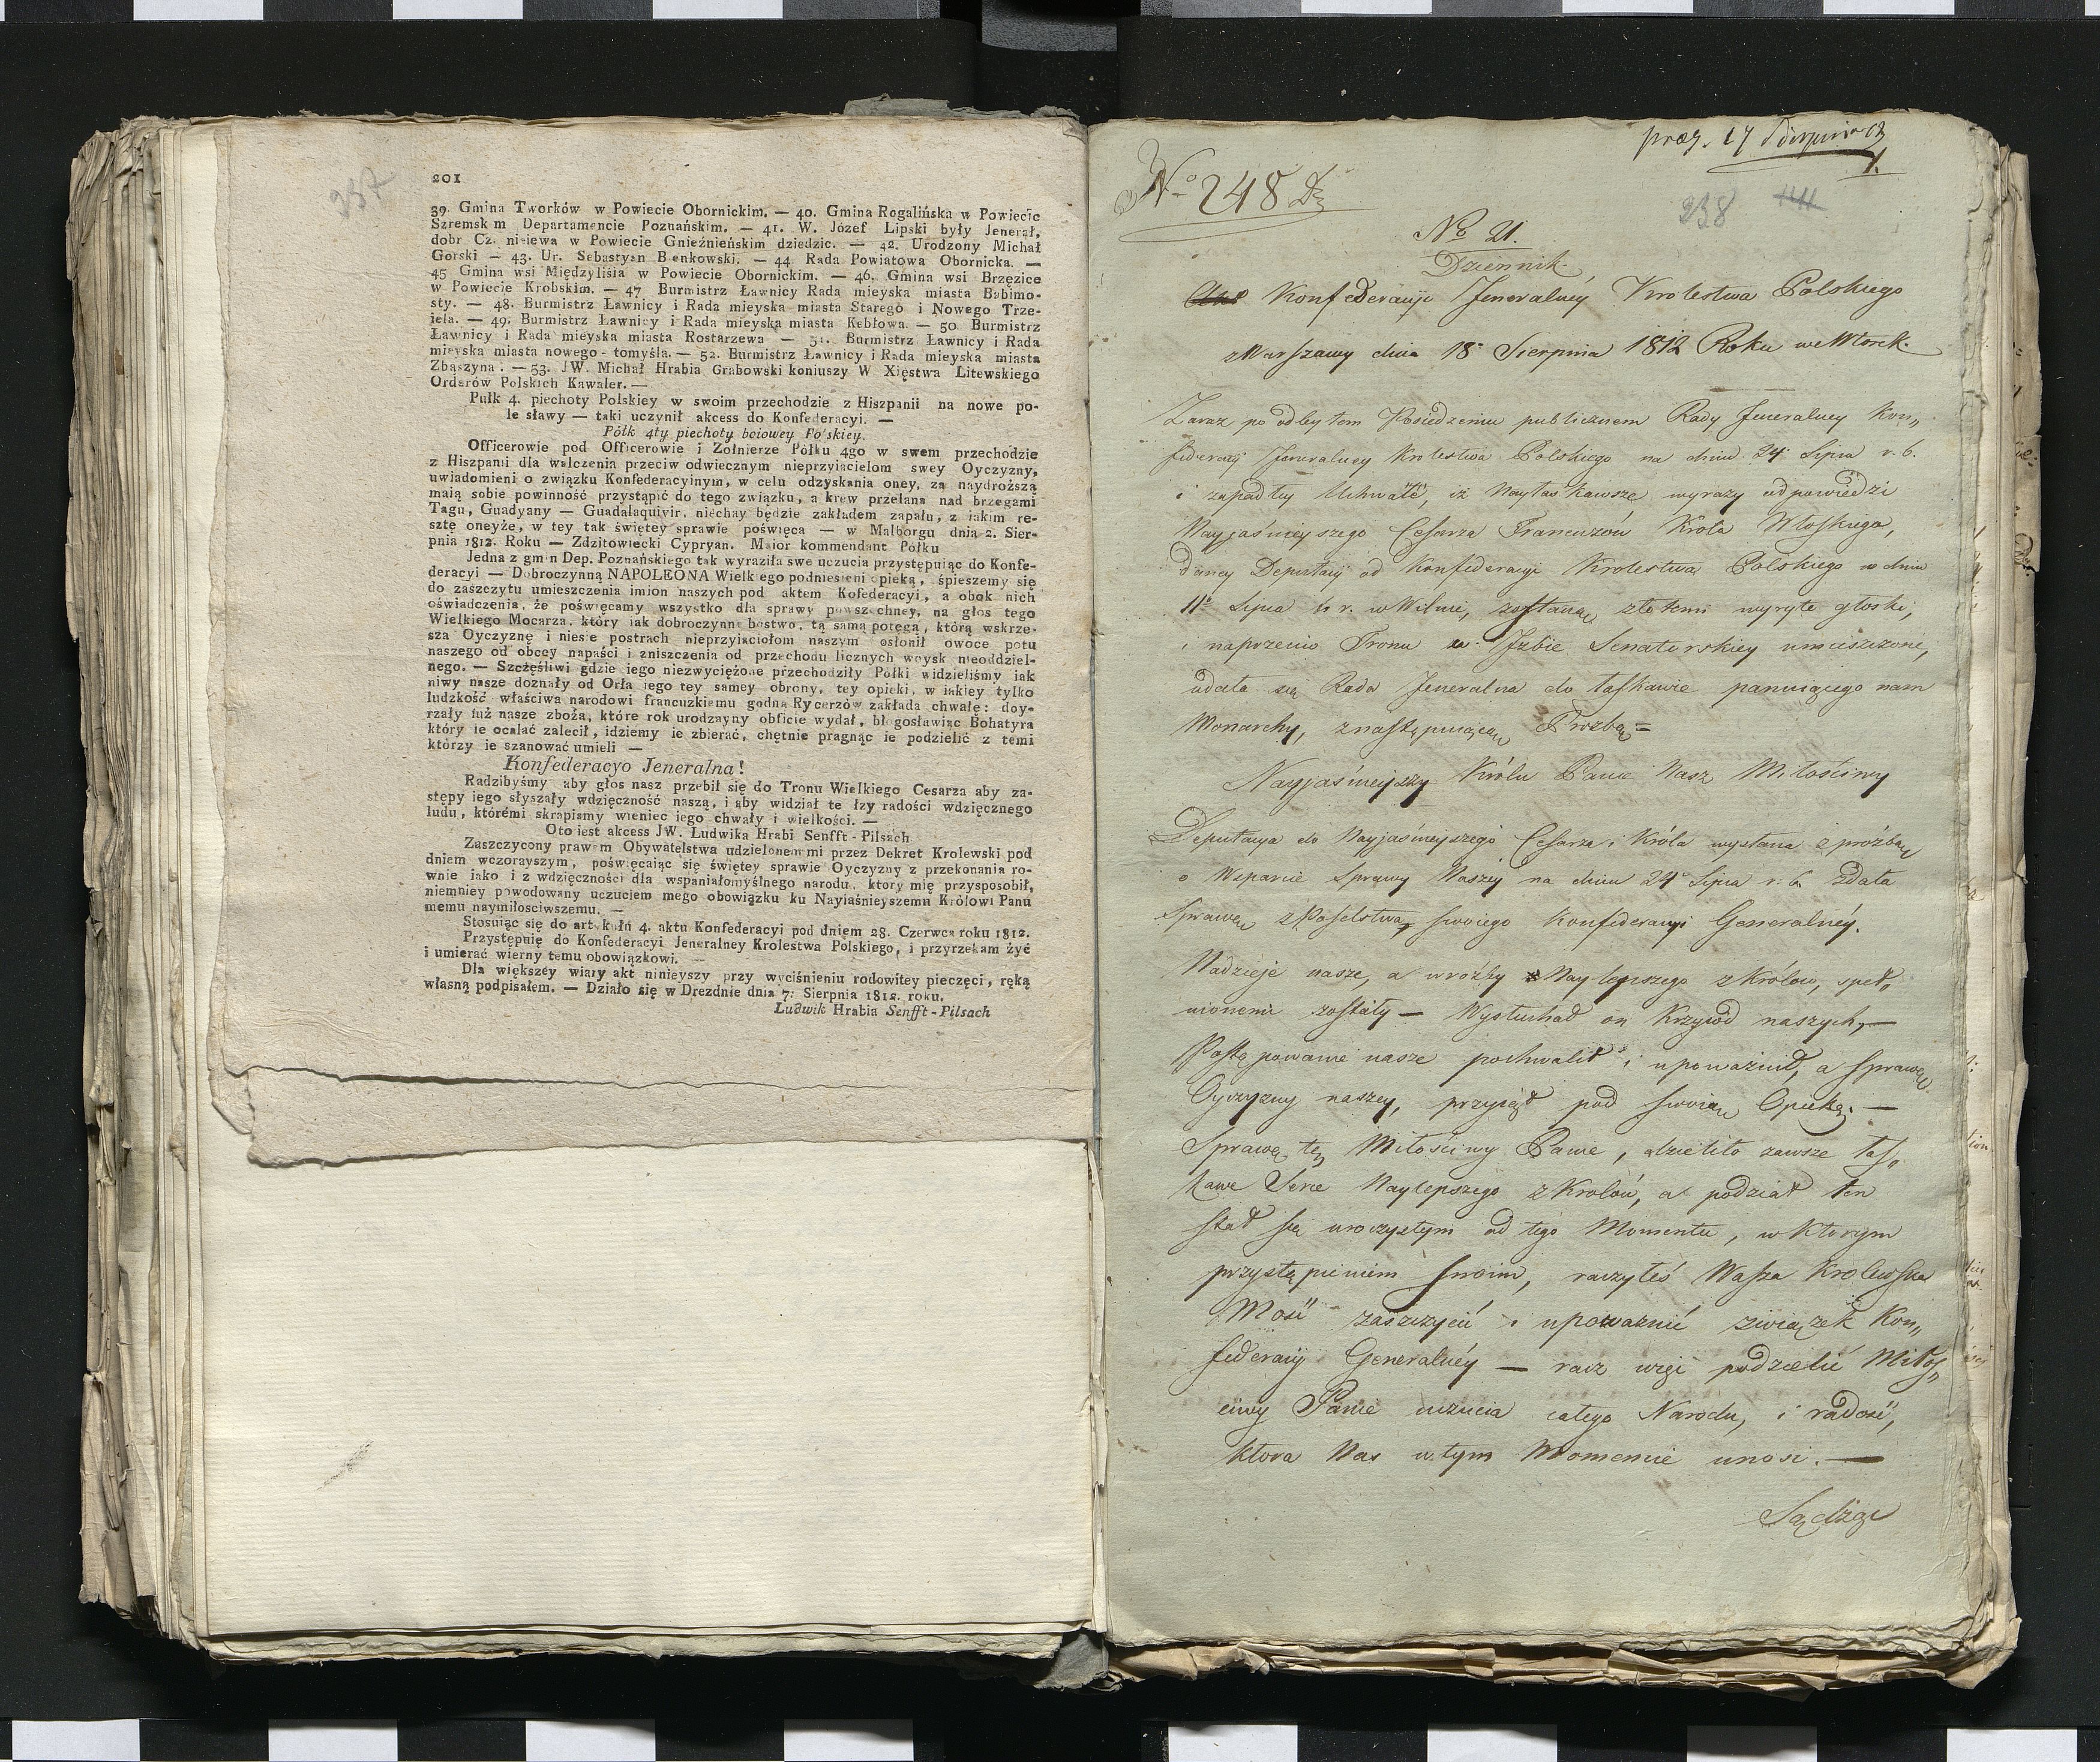 237
201
39. Gmina Tworków w Powiecie Obornickim. — 40. Gmina Rogalińska w Powiecie
Szremsk m Departamencie Poznańskim. — 41. W. Józef Lipski były Jenerał,
dobr Cz. niejewa w Powiecie Gnieźnieńskim dziedzic. — 42. Urodzony Michał
Gorski — 43. Ur. Sebastyan Bienkowski. — 44. Rada Powiatowa Obornicka. —
45 Gmina wsi Międzyliśia w Powiecie Obornickim. — 46. Gmina wsi Brzęzice
w Powiecie Krobskim. — 47 Burmistrz Ławnicy Rada mieyska miasta Babimo-
sty. — 48. Burmistrz Ławnicy i Rada mieyska miasta Starego i Nowego Trze-
iela. — 49. Burmistrz Ławnicy i Rada mieyska miasta Kebłowa. — 50. Burmistrz
Ławnicy i Rada mieyska miasta Rostarzewa — 51. Burmistrz Ławnicy i Rada
mieyska miasta nowego-tomyśla. — 52. Burmistrz Ławnicy i Rada mieyska miasta
Zbąszyna. — 53. JW. Michał Hrabia Grabowski koniuszy W Xięstwa Litewskiego
Orderów Polskich Kawaler. —
Pułk 4. piechoty Polskiey w swoim przechodzie z Hiszpanii na nowe po-
le sławy — taki uczynił akcess do Konfederacyi. —
Półk 4ty piechoty boiowey Polskiey.
Officerowie pod Officerowie i Zołnierze Półku 4go w swem przechodzie
z Hiszpanii dla walczenia przeciw odwiecznym nieprzyiacielom swey Oyczyzny,
uwiadomieni o związku Konfederacyinym, w celu odzyskania oney, za naydroższą
maią sobie powinność przystąpić do tego związku, a krew przelana nad brzegami
Tagu, Guadyany — Guadalaquivir, niechay będzie zakładem zapału, z iakim re-
sztę oneyże, w tey tak świętey sprawie poświęca — w Malborgu dnia 2. Sier-
pnia 1812. Roku — Zdzitowiecki Cypryan. Maior kommendant Półku
Jedna z gmin Dep. Poznańskiego tak wyraziła swe uczucia przystępuiąc do Konfe-
deracyi — Dobroczynną NAPOLEONA Wielkiego podniesieni opieką, śpieszemy się
do zaszczytu umieszczenia imion naszych pod aktem Kofederacyi, a obok nich
oświadczenia, że poświęcamy wszystko dla sprawy powszechney, na głos tego
Wielkiego Mocarza, który iak dobroczynne bóstwo, tą samą potęgą, którą wskrze-
sza Oyczyznę i niesie postrach nieprzyiaciołom naszym osłonił owoce potu
naszego od obcey napaści i zniszczenia od przechodu licznych woysk nieoddziel-
nego. — Szczęśliwi gdzie iego niezwyciężone przechodziły Półki widzieliśmy iak
niwy nasze doznały od Orła iego tey samey obrony, tey opieki, w iakiey tylko
ludzkość właściwa narodowi francuzkiemu godna Rycerzów zakłada chwałę: doy-
rzały iuż nasze zboża, które rok urodzayny obficie wydał, błogosławiąc Bohatyra
który ie ocalać zalecił, idziemy ie zbierać, chętnie pragnąc ie podzielić z temi
którzy ie szanować umieli —
Konfederacyo Jeneralna!
Radzibyśmy aby głos nasz przebił się do Tronu Wielkiego Cesarza aby za-
stępy iego słyszały wdzięczność naszą, i aby widział te łzy radości wdzięcznego
ludu, którémi skrapiamy wieniec iego chwały i wielkości. —
Oto iest akcess JW. Ludwika Hrabi Senfft-Pilsach
Zaszczycony prawem Obywatelstwa udzielonem mi przez Dekret Krolewski pod
dniem wczorayszym, poświęcaiąc się świętey sprawie Oyczyzny z przekonania ro-
wnie iako i z wdzięczności dla wspaniałomyślnego narodu, ktory mię przysposobił,
niemniey powodowany uczuciem mego obowiązku ku Nayiaśnieyszemu Królowi Panu
memu naymiłosciwszemu. —
Stosuiąc się do artykułu 4. aktu Konfederacyi pod dniem 28. Czerwca roku 1812.
Przystępuię do Konfederacyi Jeneralney Krolestwa Polskiego, i przyrzekam żyć
i umierać wierny temu obowiązkowi. —
Dla większéy wiary akt ninieyszy przy wyciśnieniu rodowitey pieczęci, ręką
własną podpisałem. — Działo się w Drezdnie dnia 7. Sierpnia 1812. roku.
Ludwik Hrabia Senfft-Pilsach
praez. 17 Sierpnia
1.
No 248 Dz
238
No 21.
Dziennik
Konfederacyi Jeneralnéy Krolestwa Polskiego
z Warszawy dnia 18 Sierpnia 1812 Roku we Wtorek.
Zaraz po odbytem Posiedzeniu publicznem Rady Jeneralney Kon„
federacyi Jeneralney Krolestwa Polskiego na dniu 24 Lipca r. b.
i zapadłey Uchwale, iż Nayłaskawsze wyrazy odpowiedzi
Nayjaśnieyszego Cesarza Francuzów Krola Włoskiego,
daney Deputacyi od Konfederacyi Krolestwa Polskiego w dniu
11o Lipca b. r. w Wilnie, zostaną złotemi wyryte głoski,
i naprzeciw Tronu w Jzbie Senatorskiey umieszczone,
udała się Rada Jeneralna do łaskawie panuiącego nam
Monarchy, z następuiącą Prozbą =
Nayjaśnieyszy Królu Panie Nasz Miłościwy
Deputacya do Nayjaśnieyszego Cesarza i Króla wysłana z prózbą
o Wsparcie Sprawy Naszey na dniu 24 Lipca r. b. zdała
Sprawę z Poselstwa swoiego Konfederacyi Generalnéy.
Nadzieje nasze, a wróżby Naylepszego z Królow, speł„
nionemi zostały — Wysłuchał on Krzywd naszych, —
Postępowanie nasze pochwalił i upoważnił, a Sprawę
Oyczyzny naszey, przyiął pod swoią Opiekę. —
Sprawę tę Miłościwy Panie, dzieliło zawsze łas„
kawe Serce Naylepszego z Krolów, a podział ten
stał się uroczystym od tego Momentu, w Ktorym
przystąpieniem swoim, raczyłeś Wasza Krolewska
Mość zaszczycić i upoważnić związek Kon„
federacyi Generalnéy — racz więc podzielić Miłoś„
ciwy Panie uczucia całego Narodu, i radość,
ktora Nas w tym Momencie unosi. —
Sądząc